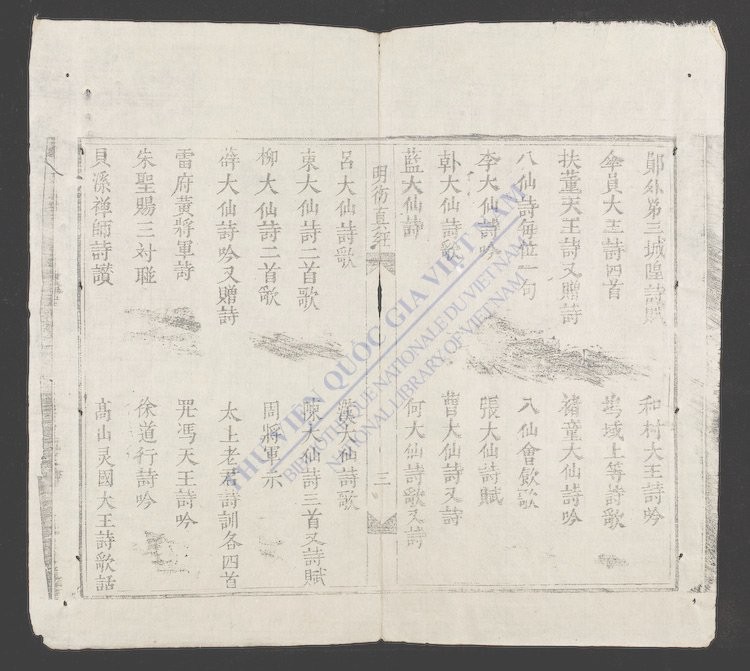 鄚外第三城隍詩賦
和村大王詩吟
傘員大王詩四首
域上等詩歌
扶董天王詩又贈詩
褚童大仙詩吟
八仙詩每位一句
八仙會飲歌
李大仙詩吟
張大仙詩賦
大仙詩歌
曹大仙詩又詩
藍大仙詩
何大仙詩歌又詩
明衡真經
三
呂大仙詩歌
漢大仙詩歌
東大仙詩二首歌
陳大仙詩三首又詩賦
柳大仙詩二首歌
周將軍示
大仙詩吟又贈詩
太上老君詩訓各四首
雷府黃將軍詩
馮天王詩吟
朱聖賜三対聯
徐道行詩吟
貝溪禅師詩讃
高山灵國大王詩歌話
THƯ VIỆN QUỐC GIA VIỆT NAM
BIBLIOTHEQUE NATIONALE DU VIETNAM
NATIONAL LIBRARY OF VIETNAM